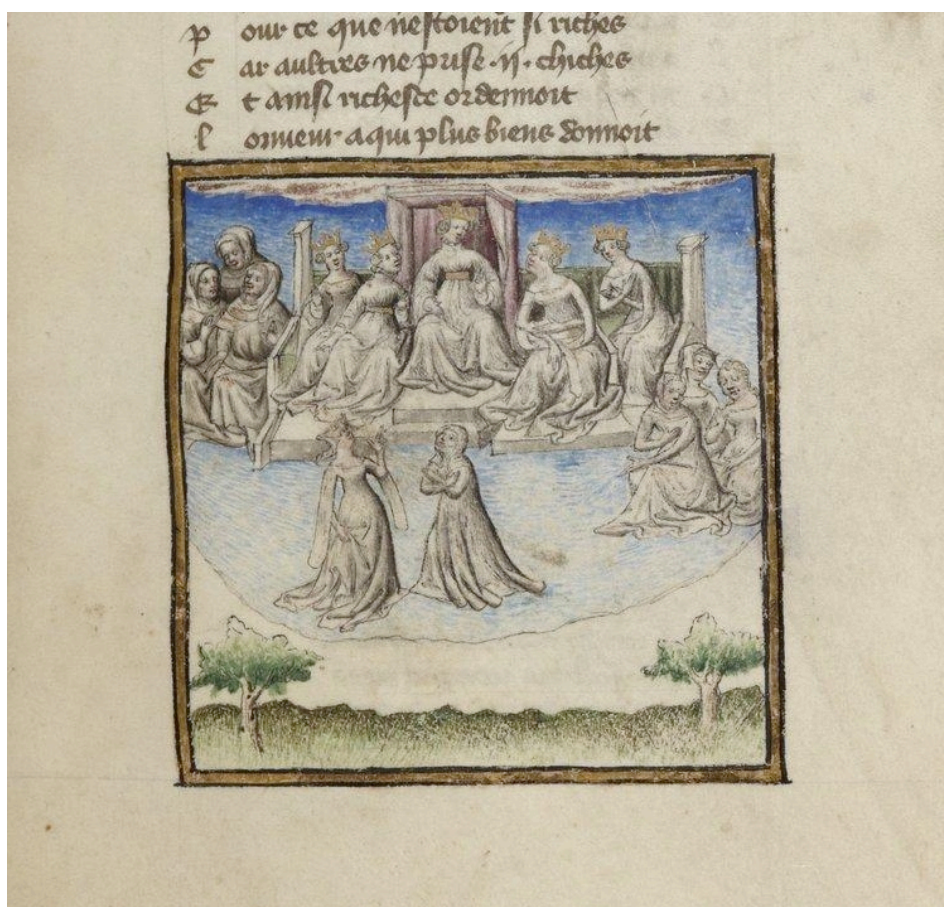 p our ce que nestoient si riches
C ar aultres ne prise .ii. chiches
E t ainsi richesce ordennoit
l onneur a qui plus biens donnoit